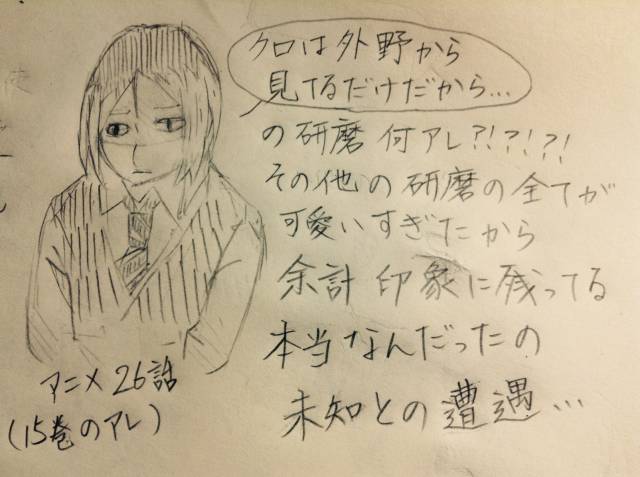 クロは外野から
見てるだけだから…
の研磨 何アレ?!?!?!
その他の研磨の全てが
可愛いすぎたから
余計 印象に残ってる
本当なんだったの
未知との遭遇…
アニメ26話
(15巻のアレ)